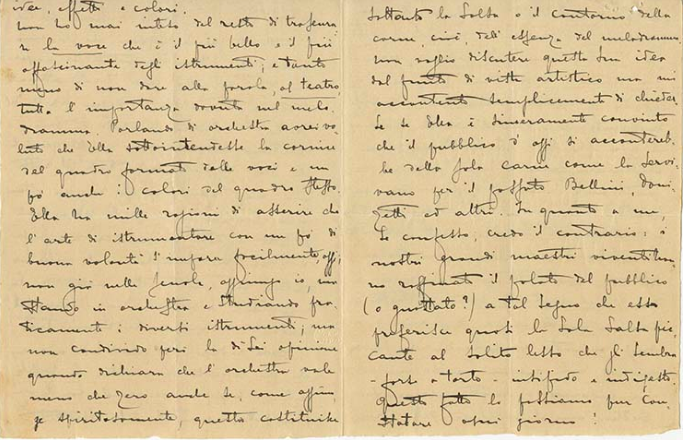 idee, effetti e colori.
Non ho mai inteso del resto di trascura-
re la voce che è il più bello e il più
affascinante degli istrumenti; e tanto
meno di non dare alla parola, al teatro,
tutta l'importanza dovuta nel melo-
dramma. Parlando di orchestra avrei vo-
luto che Ella sottointendesse la cornice
del quadro formato dalle voci e un
pò anche i colori del quadro stesso.
Ella ha mille ragioni di asserire che
l'arte di istrumentare con un pò di
buona volontà s'impara facilmente, oggi,
non già nelle scuole, aggiungo io, ma
stando in orchestra e studiando pra-
ticamente i diversi istrumenti; ma
non condivido però la di Lei opinione
quando dichiara che l'orchestra vale
meno che zero anche se, come affer-
ma spiritosamente, questa costituisce
soltanto la salsa o il contorno della
carne, cioè, dell'essenza del melodramma.
Non voglio discutere questa Sua idea
dal punto di vista artistico ma mi
accontento semplicemente di chieder-
Le se Ella è sinceramente convinto
che il pubblico d'oggi si accontereb-
be della sola carne come la servi-
vano per il passato Bellini, Doni-
zetti ed altri. In quanto a me,
Lo confesso, credo il contrario: i
nostri grandi maestri viventi han-
no raffinato il palato del pubblico
(o guastato?) a tal segno che esso
preferisce quasi la sola salsa pic-
cante al solito lesso che gli sembra
- forse a torto - insipido e indigesto.
Questo fatto lo possiamo pur con-
statare ogni giorno!